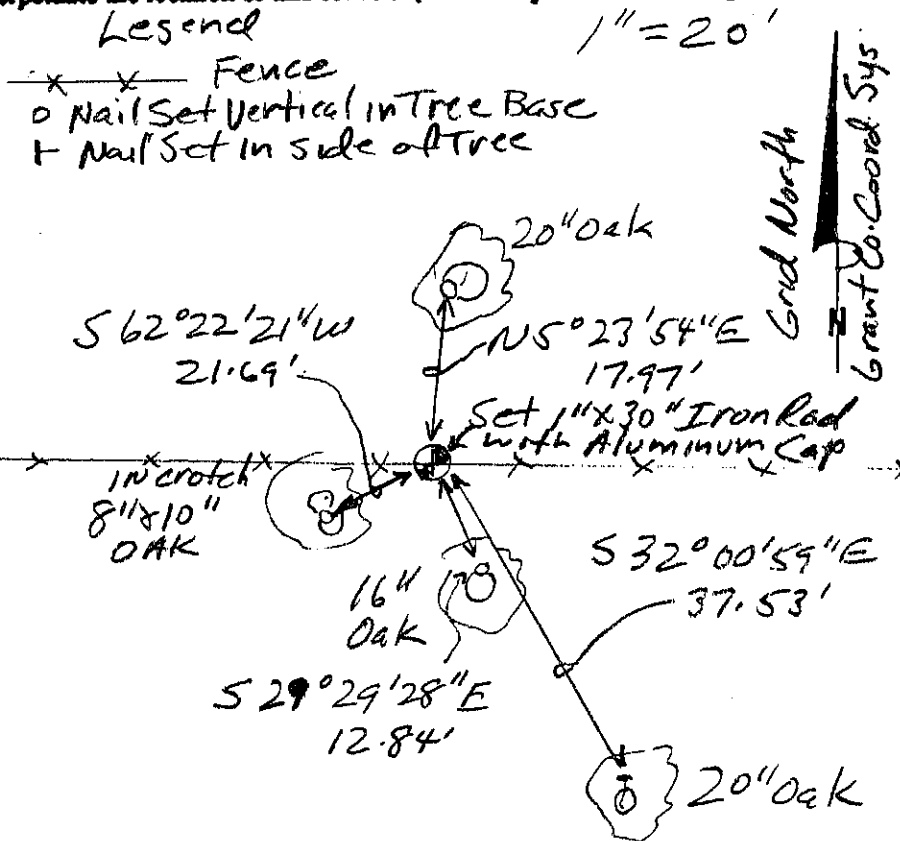 Legend
1" = 20'
x x Fence
o Nail Set Vertical in Tree Base
⊢ Nail Set in side of Tree
Grid North
Grant Co. Coord. Sys
20" Oak
S 62° 22' 21" W
21.69'
N 5° 23' 54" E
17.97'
Set 1" X 30" Iron Rod
with Aluminum Cap
in crotch
8" X 10"
OAK
16"
Oak
S 32° 00' 59" E
37.53'
S 29° 29' 28" E
12.84'
20" Oak